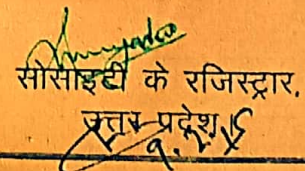 सोसाइटी के रजिस्ट्रार.
उत्तर प्रदेश